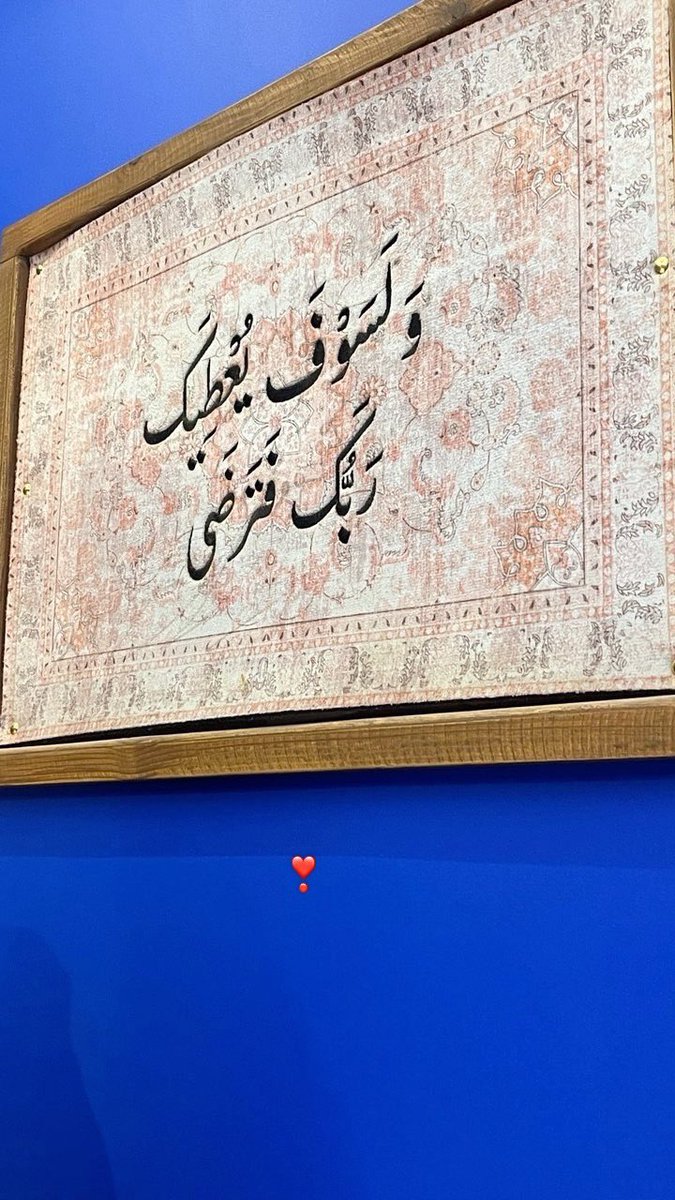 وَلَسَوْفَ يُعْطِيكَ
رَبُّكَ فَتَرَضَى